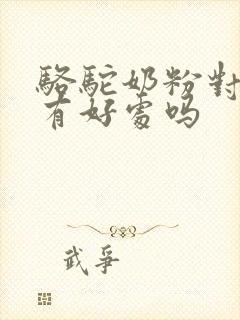 駱駝奶粉對
有好處嗎
武爭